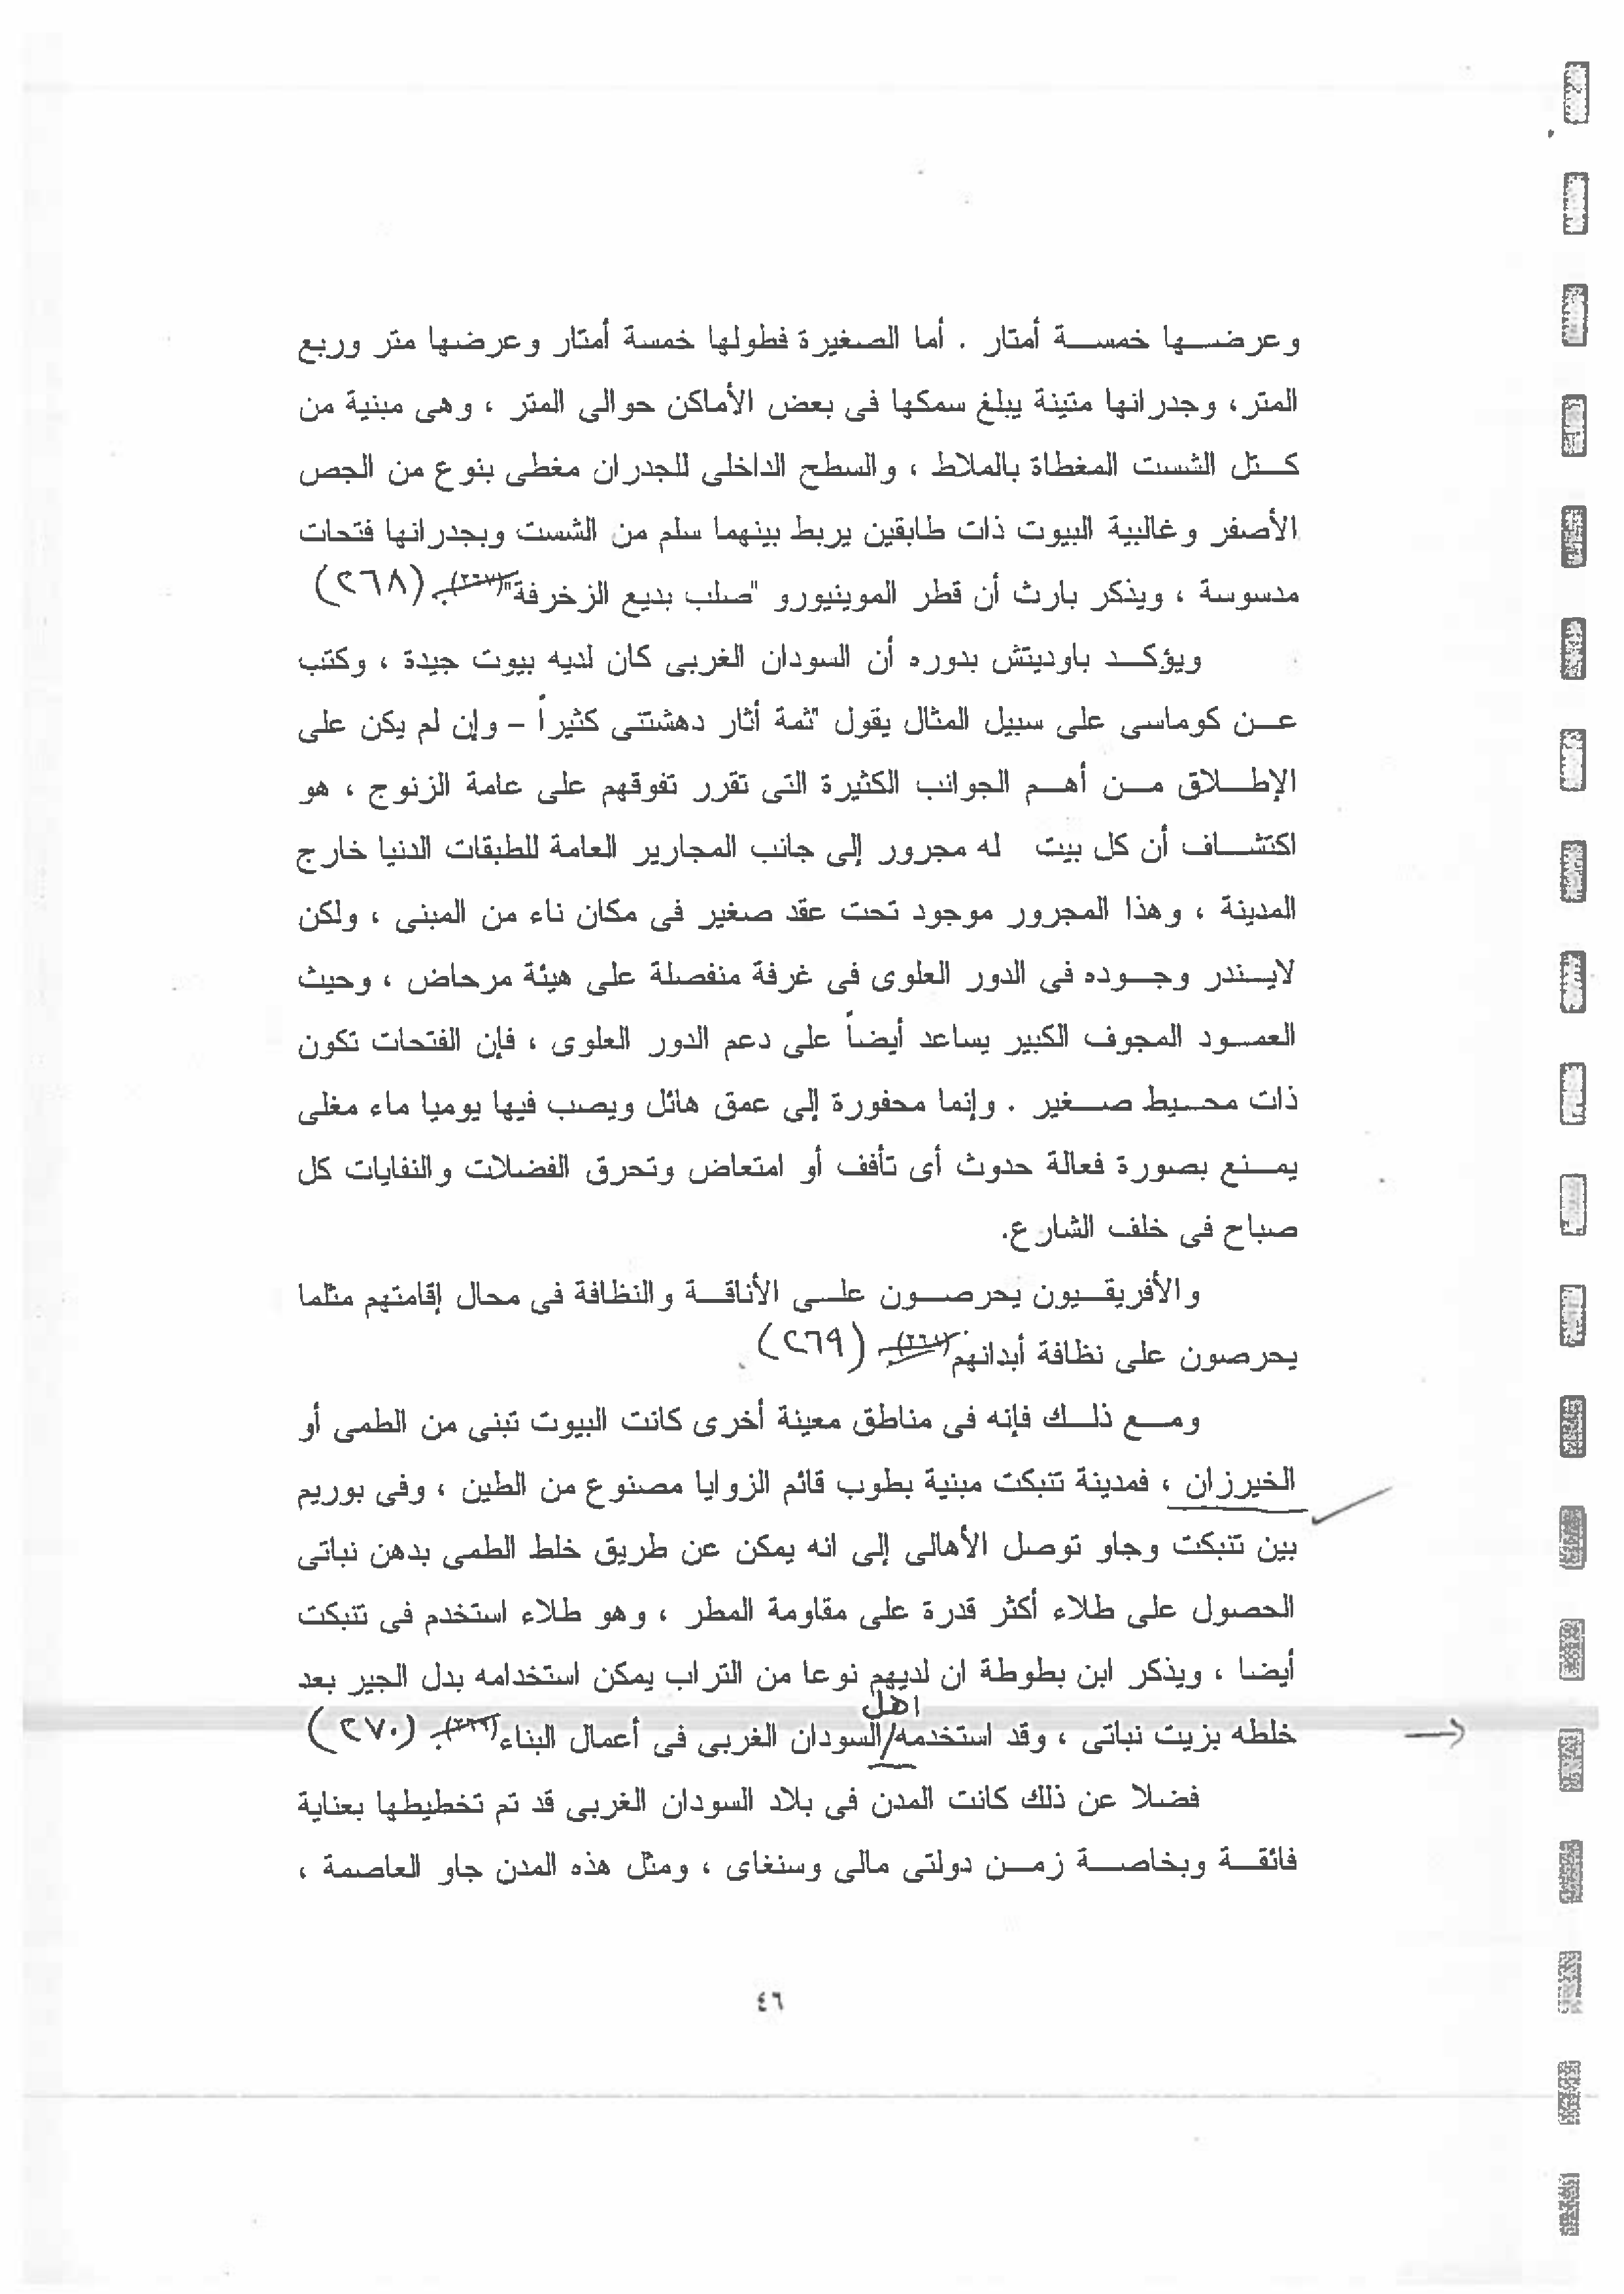 وعرضها خمسة أمتار . أما الصغيرة فطولها خمسة أمتار وعرضها متر وربع
المتر، وجدرانها متينة يبلغ سمكها فى بعض الأماكن حوالى المتر ، وهى مبنية من
كتل الشست المغطاة بالملاط ، والسطح الداخلى للجدران مغطى بنوع من الجص
الأصفر وغالبية البيوت ذات طابقين يربط بينهما سلم من الشست وبجدرانها فتحات
مدسوسة ، ويذكر بارث أن قطر الموينيورو "صلب بديع الزخرفة"(٢٦٧). (٢٦٨)
ويؤكد باوديتش بدوره أن السودان الغربى كان لديه بيوت جيدة ، وكتب
عن كوماسى على سبيل المثال يقول "ثمة أثار دهشتنى كثيراً – وإن لم يكن على
الإطلاق من أهم الجوانب الكثيرة التى تقرر تفوقهم على عامة الزنوج ، هو
اكتشاف أن كل بيت له مجرور إلى جانب المجارير العامة للطبقات الدنيا خارج
المدينة ، وهذا المجرور موجود تحت عقد صغير فى مكان ناء من المبنى ، ولكن
لايندر وجوده فى الدور العلوى فى غرفة منفصلة على هيئة مرحاض ، وحيث
العمود المجوف الكبير يساعد أيضاً على دعم الدور العلوى ، فإن الفتحات تكون
ذات محيط صغير . وإنما محفورة إلى عمق هائل ويصب فيها يوميا ماء مغلى
يمنع بصورة فعالة حدوث أى تأفف أو امتعاض وتحرق الفضلات والنفايات كل
صباح فى خلف الشارع.
والأفريقيون يحرصون على الأناقة والنظافة فى محال إقامتهم مثلما
يحرصون على نظافة أبدانهم(٢٦٨). (٢٦٩)
ومع ذلك فإنه فى مناطق معينة أخرى كانت البيوت تبنى من الطمى أو
الخيرزان ، فمدينة تنبكت مبنية بطوب قائم الزوايا مصنوع من الطين ، وفى بوريم
بين تنبكت وجاو توصل الأهالى إلى انه يمكن عن طريق خلط الطمى بدهن نباتى
الحصول على طلاء أكثر قدرة على مقاومة المطر ، وهو طلاء استخدم فى تنبكت
أيضا ، ويذكر ابن بطوطة ان لديهم نوعا من التراب يمكن استخدامه بدل الجير بعد
اهل
خلطه بزيت نباتى ، وقد استخدمه/السودان الغربى فى أعمال البناء(٢٦٩). (٢٧٠)
فضلا عن ذلك كانت المدن فى بلاد السودان الغربى قد تم تخطيطها بعناية
فائقة وبخاصة زمن دولتى مالى وسنغاى ، ومثل هذه المدن جاو العاصمة ،
٤٦